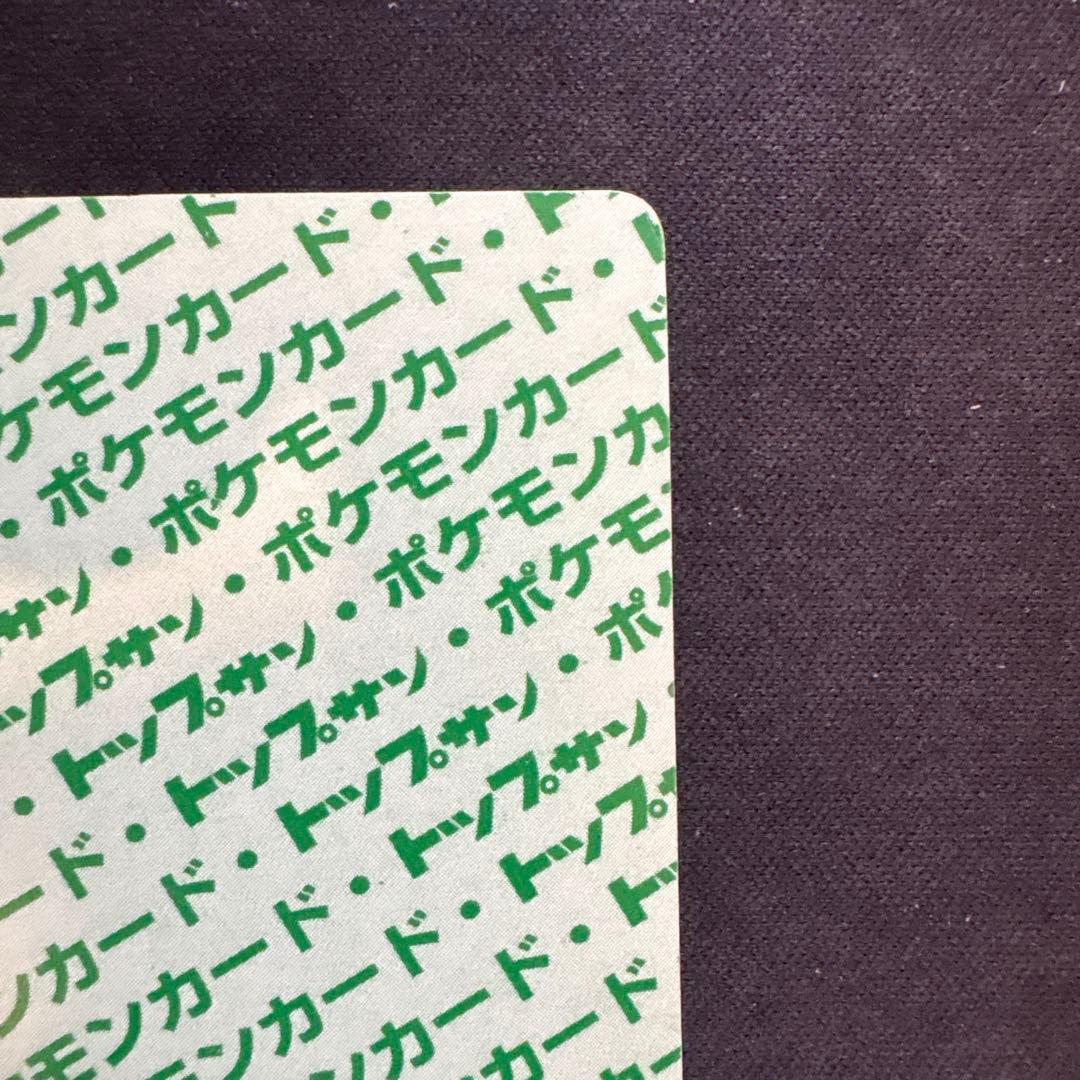 カード・ト
ンカード・ト
ケモンカード・ト
・ポケモンカード
トップサン・ポケモンカード
トップサン・ポケモンカード
トップサン・ポケモンカ
・トップサン・ポケモ
ード・トップサン・ポ
ンカード・トップサン・
モンカード・トップサ
モンカード・トッ
ンカード・ト
カード